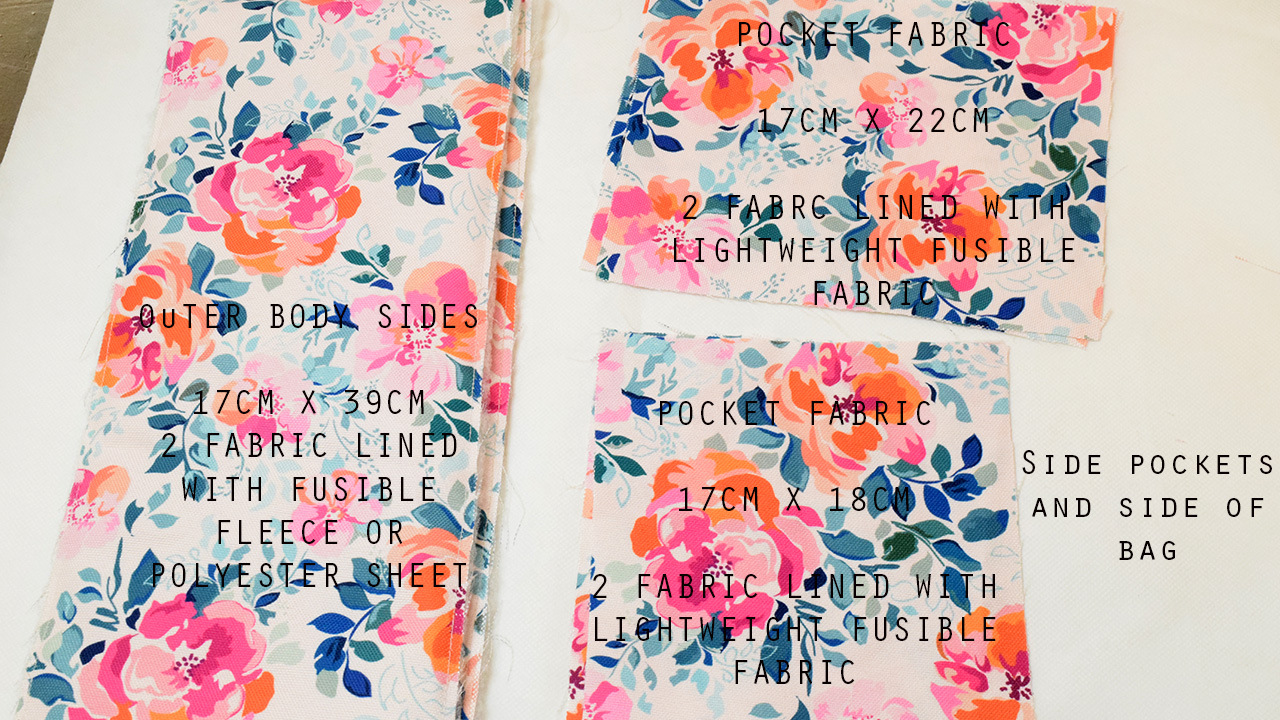 OuTER BODY SIDES
17CM X 39CM
2 FABRIC LINED
WITH FUSIBLE
FLEECE OR
POLYESTER SHEET
POCKET FABRIC
17CM X 22CM
2 FABRC LINED WITH
LIGHTWEIGHT FUSIBLE
FABRIC
POCKET FABRIC
17CM X 18CM
2 FABRIC LINED WITH
LIGHTWEIGHT FUSIBLE
FABRIC
SIDE POCKETS
AND SIDE OF
BAG